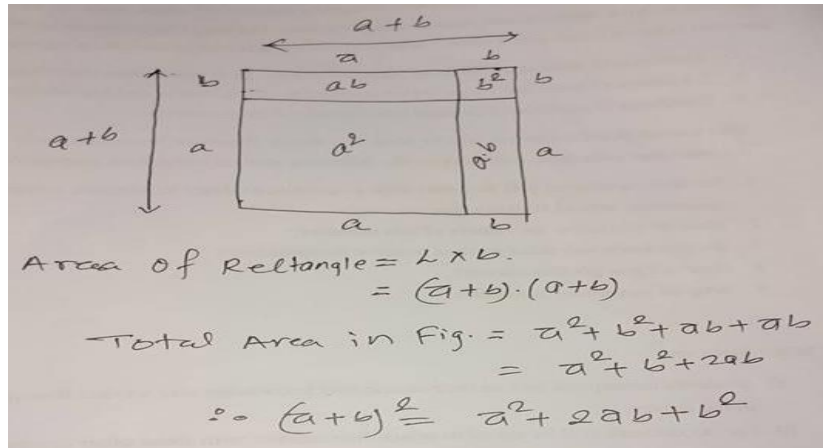 a + b
a b
b ab b² b
a + b a a² a.b a
a b
Area of Rectangle = L x b.
= (a + b) . (a + b)
Total Area in Fig. = a² + b² + ab + ab
= a² + b² + 2ab
∴ (a + b)² = a² + 2ab + b²